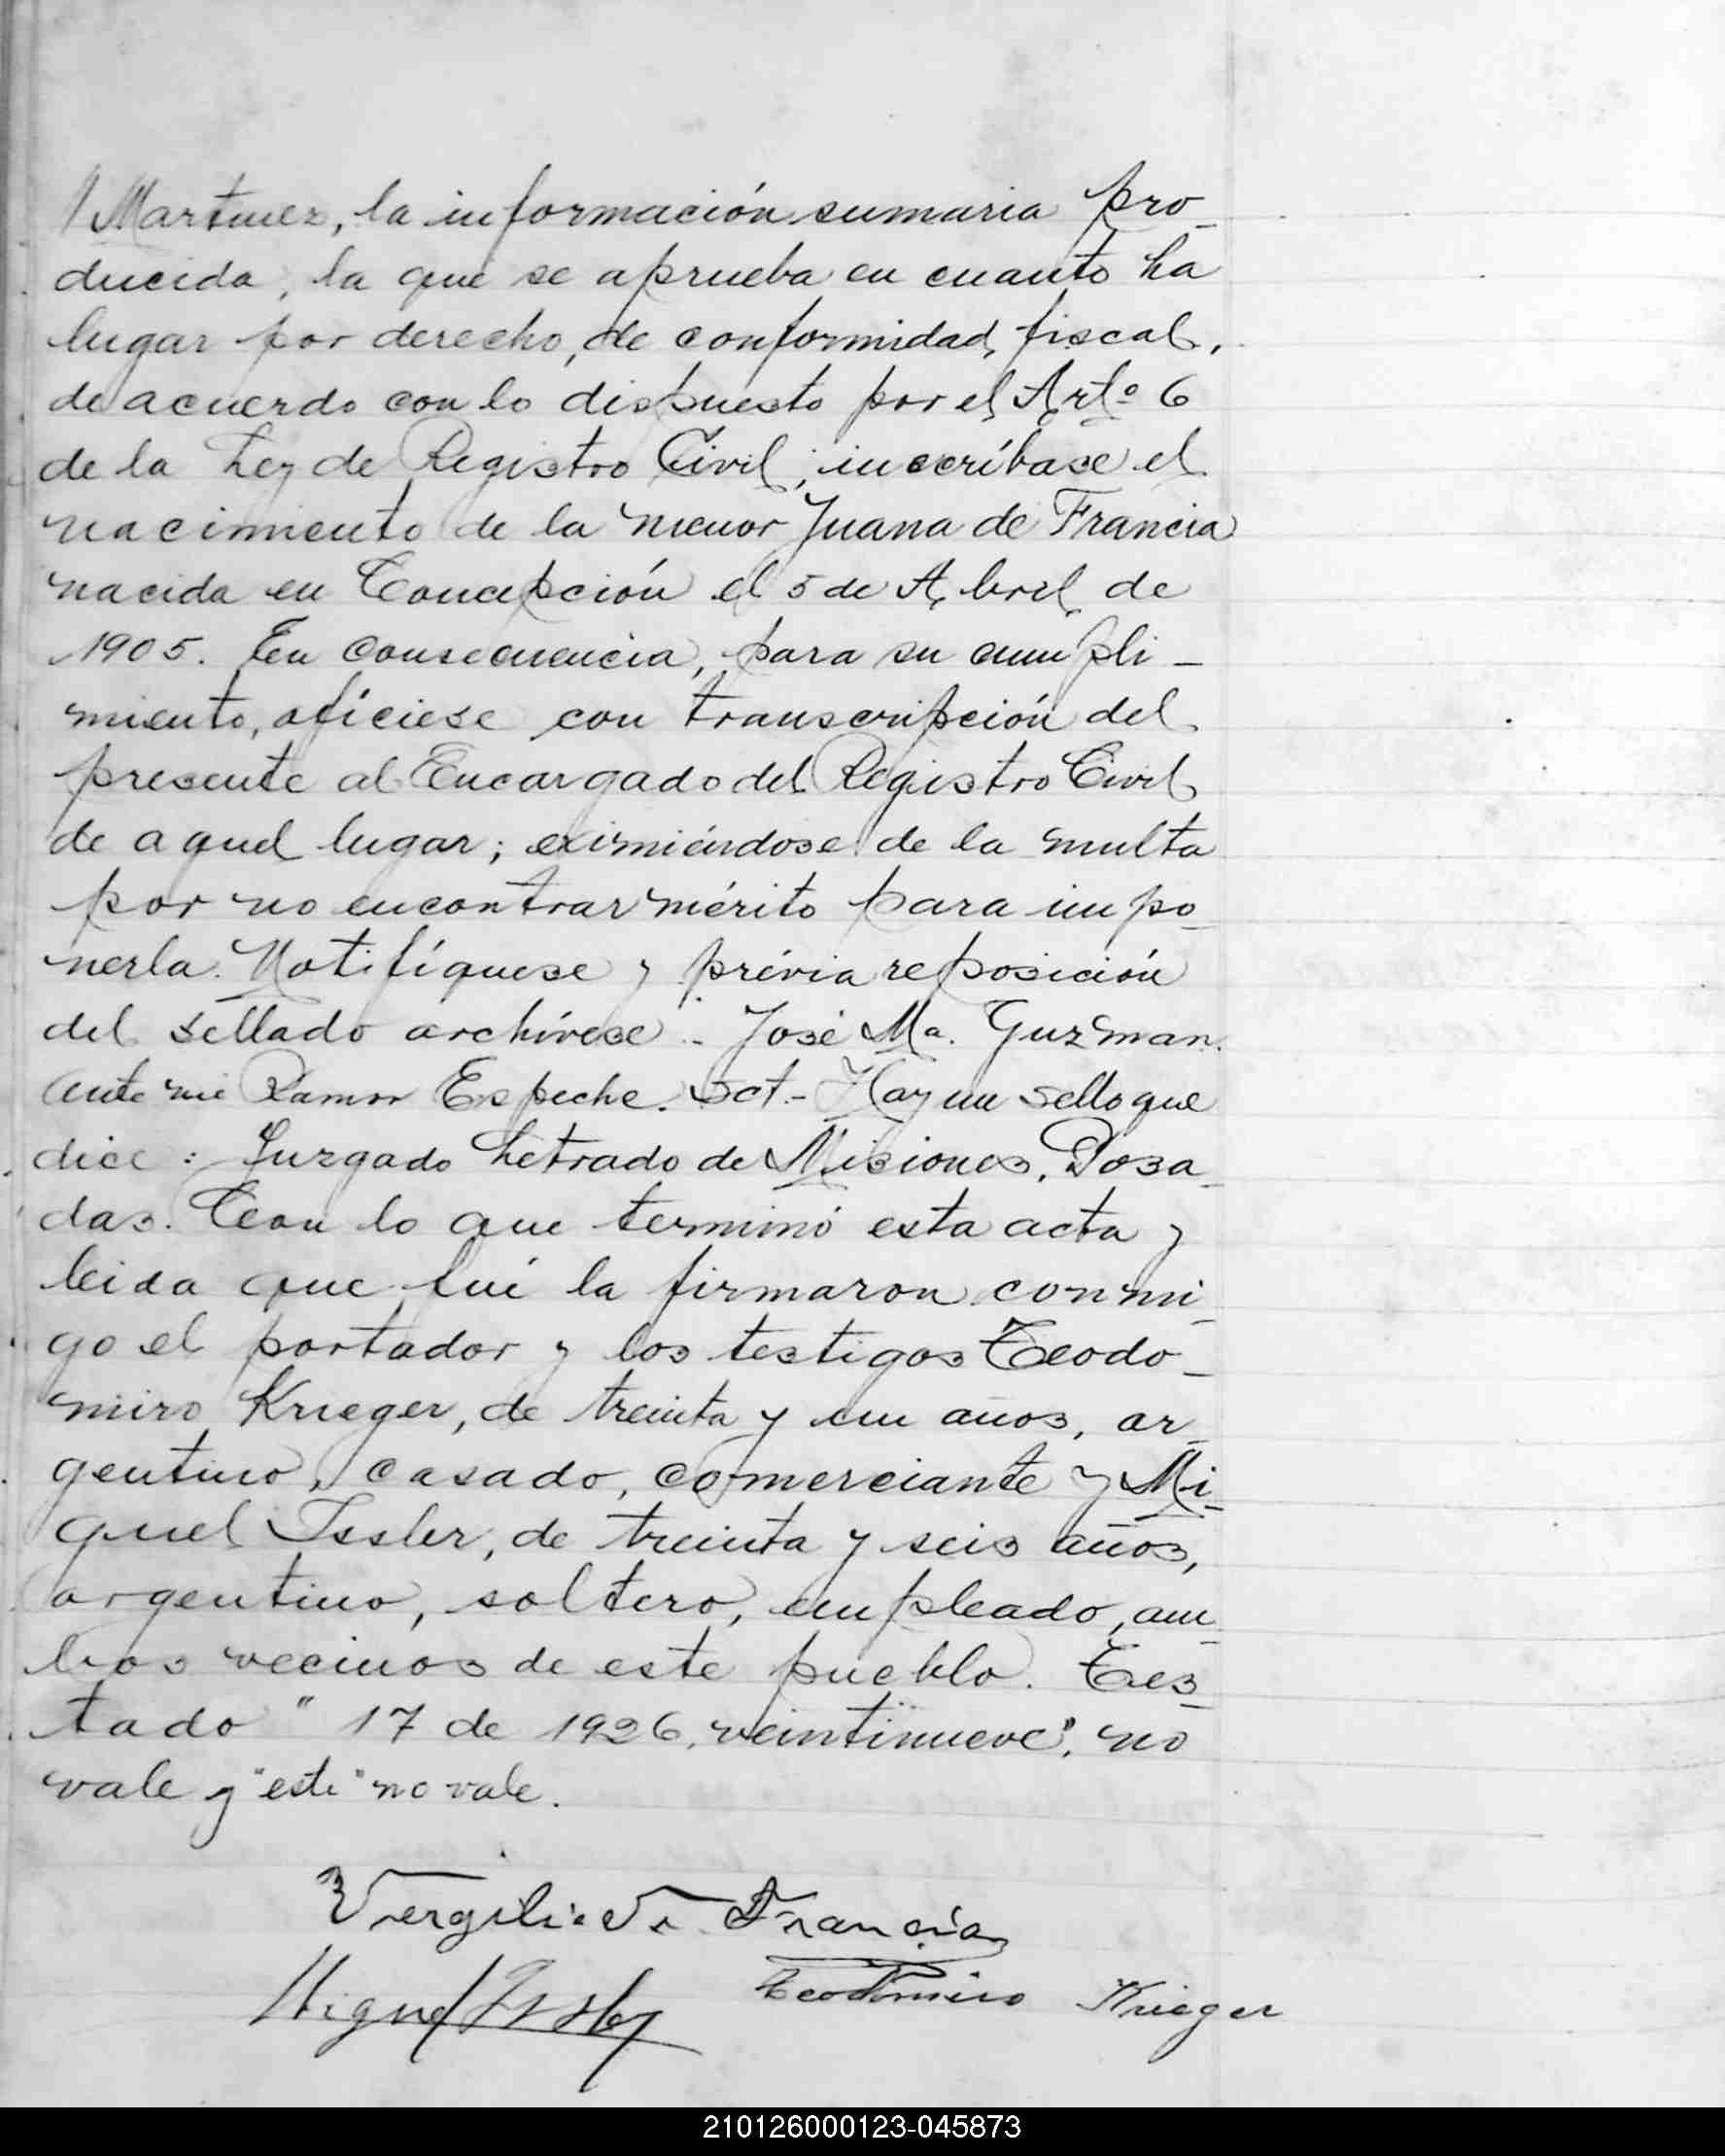 /Martinez, la información sumaria pro_
ducida, la que se aprueba en cuanto ha
lugar por derecho, de conformidad fiscal,
de acuerdo con lo dispuesto por el Artº 6
de la Ley de Registro Civil; inscríbase el
nacimiento de la menor Juana de Francia
nacida en Concepción el 5 de Abril de
1905. En consecuencia, para su cumpli_
miento, ofíciese con transcripción del
presente al Encargado del Registro Civil
de aquel lugar; eximiéndose de la multa
por no encontrar mérito para impo_
nerla. Notifíquese y prévia reposición
del sellado archívese.- José Ma. Guzman.
Ante mi Ramon Espeche. Sct.- Hay un sello que
dice: Juzgado Letrado de Misiones, Posa_
das. Con lo que terminó esta acta y
leida que fué la firmaron conmi_
go el portador y los testigos Teodo_
miro Krieger, de treinta y un años, ar_
gentino, casado, comerciante y Mi_
guel Issler, de treinta y seis años,
argentino, soltero, empleado, am_
bos vecinos de este pueblo. Tes_
tado "17 de 1926, veintinueve", no
vale y "este" no vale.
Viergilio de Francia
Miguel Issler Teodomiro Krieger
210126000123-045873